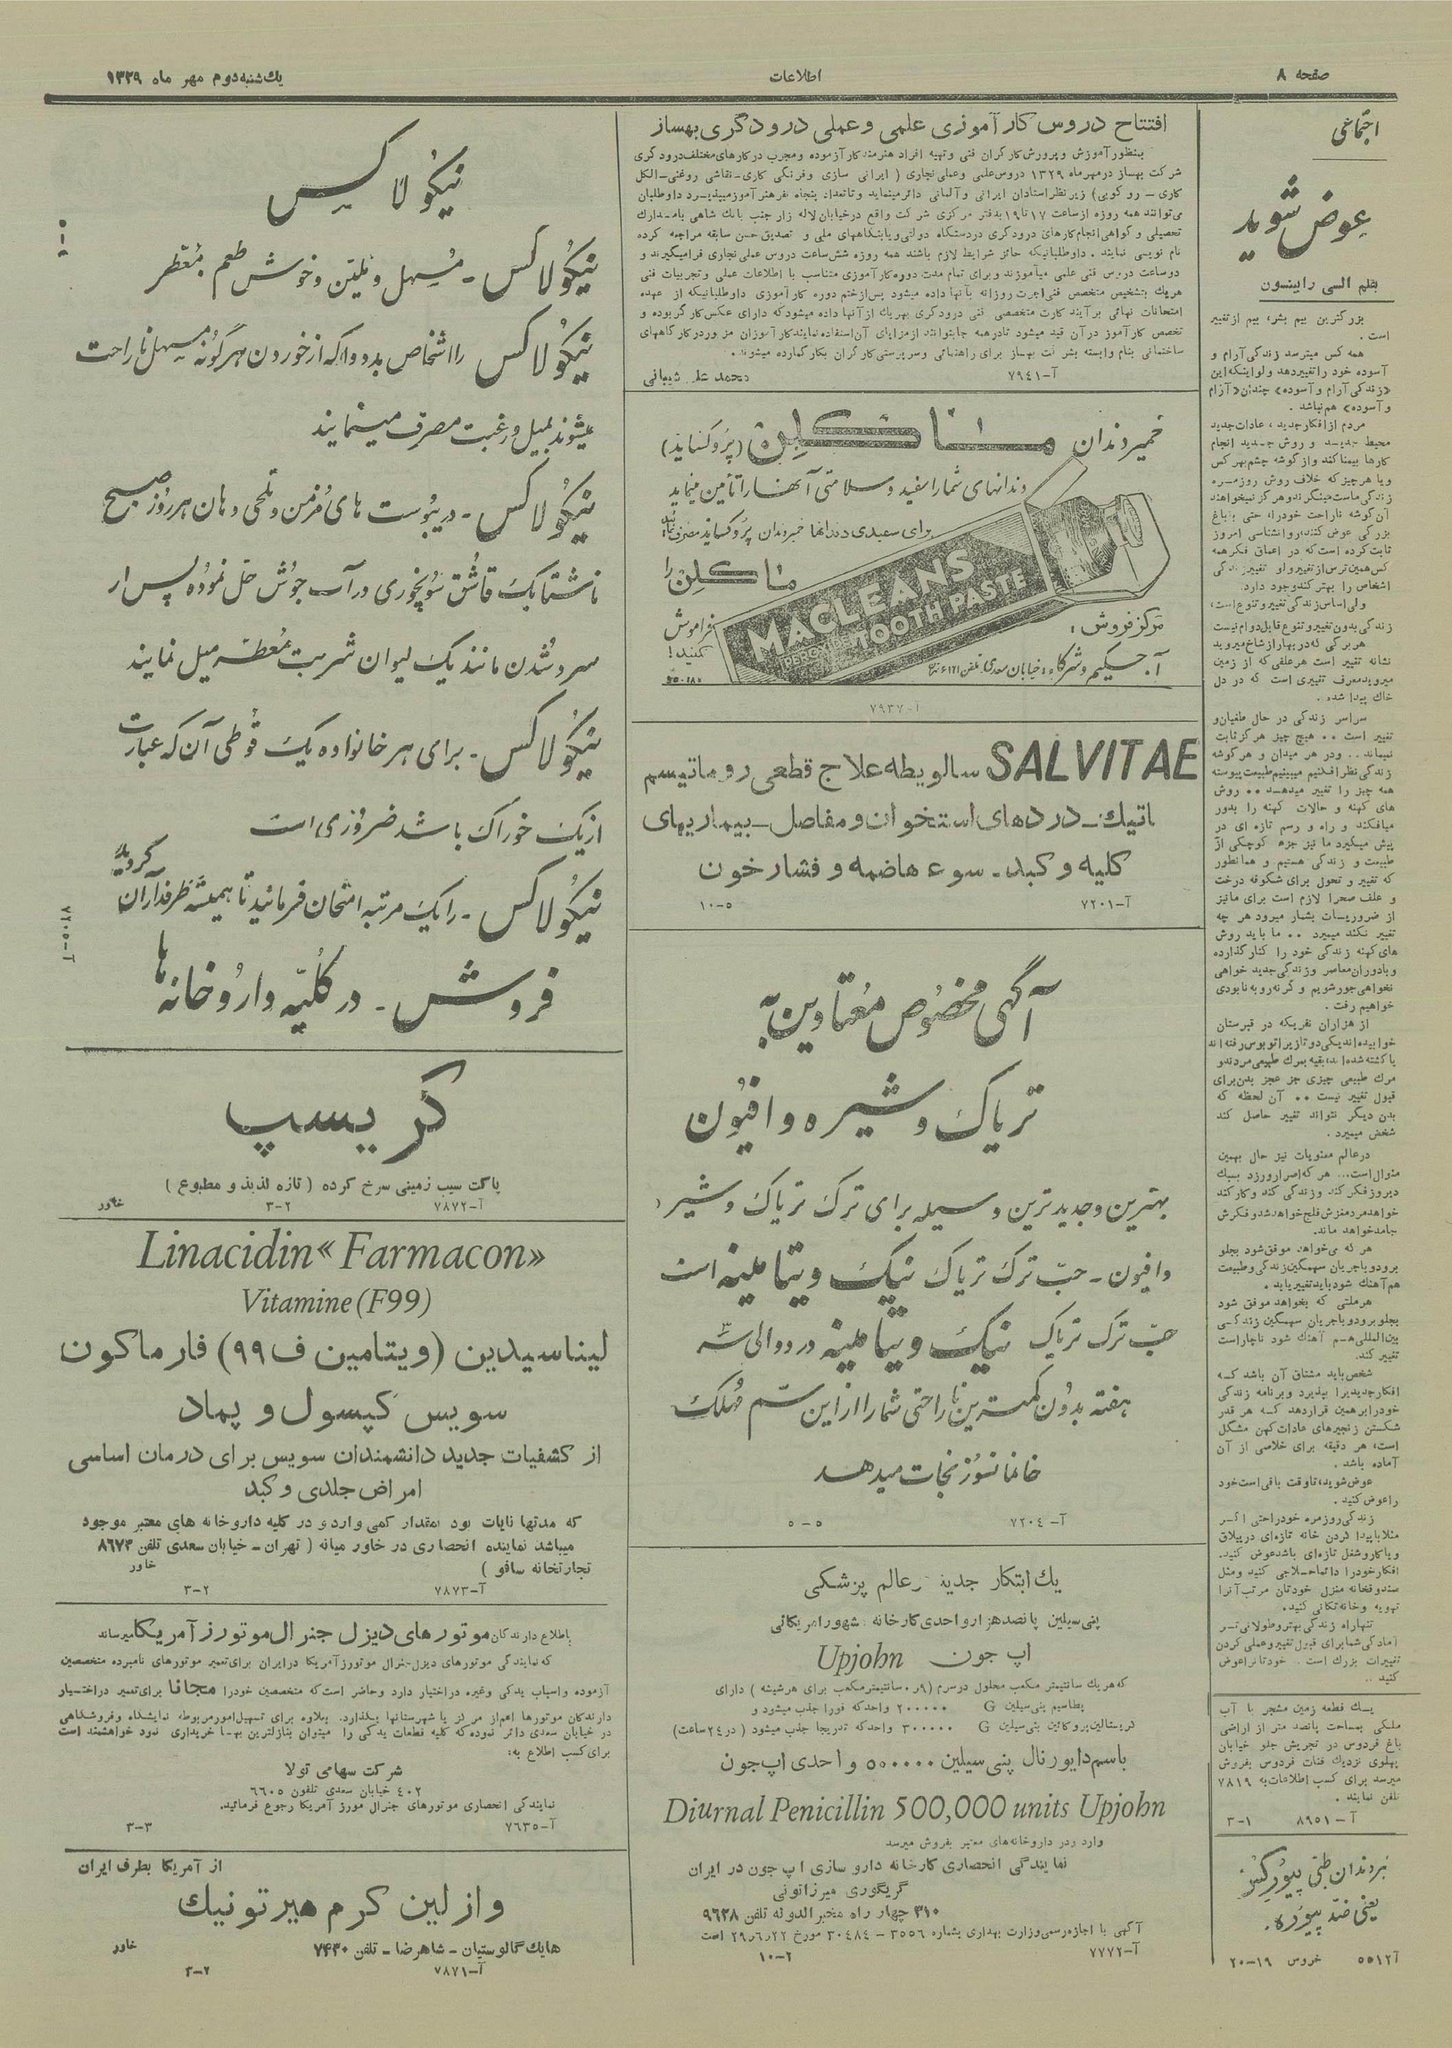 صفحه ۸
اطلاعات
یك شنبه دوم مهر ماه ۱۳۲۹
اجتماعی
عوض شوید
بقلم السی رابینسون
بزرگترین بیم بشر، بیم از تغییر
است .
همه کس میترسد زندگی آرام و
آسوده خود را تغییر دهد ولو اینکه این
«زندگی آرام و آسوده» چندان «آرام
و آسوده» هم نباشد .
مردم از افکار جدید، عادات جدید
محیط جدید و روش جدید انجام
کارها بیمناکند و از گوشه چشم بهر کس
و یا هر چیز که خلاف روش روزمره
زندگی ماست مینگرند و هرگز نمیخواهند
آن گوشه ناراحت خود را، حتی با باغ
بزرگی عوض کنند، روانشناسی امروز
ثابت کرده است که در اعماق فکر همه
کس همین ترس از تغییر ولو تغییر زندگی
اشخاص را بهتر کند وجود دارد.
ولی اساس زندگی تغییر و تنوع است،
زندگی بدون تغییر و تنوع قابل دوام نیست
هر برگی که در بهار از شاخ میروید
نشانه تغییر است هر علفی که از زمین
میروید معرف تغییری است که در دل
خاك پیدا شده .
سراسر زندگی در حال طغیان و
تغییر است .. هیچ چیز هرگز ثابت
نمیماند .. و در هر میدان و هر گوشه
زندگی نظر افکنیم میبینیم طبیعت پیوسته
همه چیز را تغییر میدهد .. روش
های کهنه و حالات کهنه را بدور
میافکند و راه و رسم تازه ای در
پیش میگیرد ما نیز جزء کوچکی از
طبیعت و زندگی هستیم و همانطور
که تغییر و تحول برای شکوفه درخت
و علف صحرا لازم است برای ما نیز
از ضروریات بشمار میرود هر چه
تغییر نکند میمیرد .. ما باید روش
های کهنه زندگی خود را کنار گذارده
و با دوران معاصر و زندگی جدید خواهی
نخواهی جور شویم و گرنه رو به نابودی
خواهیم رفت .
از هزاران نفریکه در قبرستان
خوابیده اند یکی دو تا زیر اتوبوس رفته اند
یا کشته شده اند، بقیه بمرك طبیعی مردند و
مرك طبیعی چیزی جز عجز بدن برای
قبول تغییر نیست .. آن لحظه که
بدن دیگر نتواند تغییر حاصل کند
شخص میمیرد .
در عالم معنویات نیز حال بهمین
منوال است... هر که اصرار ورزد بسبك
دیروز فکر کند و زندگی کند و کار کند
خواهد مرد مغزش فلج خواهد شد و فکرش
جامد خواهد ماند.
هر که می خواهد موفق شود بجلو
برود و با جریان سهمگین زندگی و طبیعت
هم آهنك شود باید تغییر یابد .
هر ملتی که بخواهد موفق شود
بجلو برود و با جریان سهمگین زندگی
بین المللی هم آهنك شود ناچار است
تغییر کند.
شخص باید مشتاق آن باشد که
افکار جدید را بپذیرد و برنامه زندگی
خود را بر همین قرار دهد که هر قدر
شکستن زنجیرهای عادات کهن مشکل
است، هر دقیقه برای خلاصی از آن
آماده باشد .
عوض شوید، تا وقت باقی است خود
را عوض کنید .
زندگی روزمره خود را حتی اگر
مثلا با پیدا کردن خانه تازه ای در ییلاق
و یا کار و شغل تازه ای باشد عوض کنید.
افکار خود را دائما حلاجی کنید و مثل
صندوقخانه منزل خودتان مرتب آنرا
تهویه و خانه تکانی کنید.
تنها راه زندگی بهتر و طولانی تر
آمادگی شما برای قبول تغییر و عملی کردن
تغییرات بزرك است .. خودتانرا عوض
کنید ..
یك قطعه زمین مشجر با آب
ملکی بمساحت پانصد متر از اراضی
باغ فردوس در تجریش جلو خیابان
پهلوی نزدیك قنات فردوس بفروش
میرسد برای کسب اطلاعات به ۷۸۱۹
تلفن نمایند .
آ - ۸۹۵۱ ۱-۳
خمیر دندان طبی پیورکس
یعنی ضد پیوره .
آ ۵۵۱۲ خروس ۱۹-۲۰
افتتاح دروس کارآموزی علمی و عملی درودگری بهساز
بمنظور آموزش و پرورش کارگران فنی و تهیه افراد هنرمند کار آزموده و مجرب در کارهای مختلف درودگری
شرکت بهساز در مهر ماه ۱۳۲۹ دروس علمی و عملی نجاری ( ایرانی سازی و فرنگی کاری - نقاشی روغنی - الکل
کاری - روکوبی ) زیر نظر استادان ایرانی و آلمانی دائر مینماید و تا تعداد پنجاه نفر هنر آموز میپذیرد داوطلبان
می توانند همه روزه از ساعت ۱۷ تا ۱۹ بدفتر مرکزی شرکت واقع در خیابان لاله زار جنب بانك شاهی با مدارك
تحصیلی و گواهی انجام کارهای درودگری در دستگاه دولتی و یا بنگاههای ملی و تصدیق حسن سابقه مراجعه کرده
نام نویسی نمایند . داوطلبانیکه حائز شرایط لازم باشند همه روزه شش ساعت دروس عملی نجاری فرا میگیرند و
دو ساعت دروس فنی علمی میآموزند و برای تمام مدت دوره کار آموزی متناسب با اطلاعات عملی و تجربیات فنی
هر یك بتشخیص متخصص فنی اجرت روزانه بآنها داده میشود پس از ختم دوره کار آموزی داوطلبانیکه از عهده
امتحانات نهائی بر آیند کارت متخصصی فنی درودگری بهر یك از آنها داده میشود که دارای عکس کارگر بوده و
تخصص کار آموز در آن قید میشود تا در همه جا بتوانند از مزایای آن استفاده نمایند کارآموزان مزبور در کارگاههای
ساختمانی بنام وابسته بشرکت بهساز برای راهنمائی و سرپرستی کارگران بکار گمارده میشوند .
آ-۷۹۴۱ محمد علی شیبانی
خمیر دندان ماکلین (پروکساید)
دندانهای شما را سفید و سلامتی آنها را تأمین مینماید
برای سفیدی دندانها خمیر دندان پروکساید مصرف نمائید
ماکلین را
فراموش
نکنید !
MACLEANS
PEROXIDE TOOTH PASTE
مرکز فروش :
آ. حکیم و شرکاء : خیابان سعدی، تلفن ۶۱۲۱
آ-۷۹۳۷
SALVITAE سالویطه علاج قطعی روماتیسم
اتیك - دردهای استخوان و مفاصل - بیماریهای
کلیه و کبد - سوء هاضمه و فشار خون
آ-۷۲۰۱ ۵-۱۰
آگهی مخصوص معتادین به
تریاك و شیره و افیون
بهترین و جدیدترین وسیله برای ترك تریاك و شیره
و افیون - حب ترك تریاك نیك ویتامینه است
حب ترك تریاك نیك ویتامینه در دو الی سه
هفته بدون کمترین ناراحتی شما را از این سم مهلك
خانمانسوز نجات میدهد
آ-۷۲۰۴ ۵-۵
یك ابتکار جدید در عالم پزشکی
پنی سیلین پانصد هزار واحدی کارخانه مشهور امریکائی
اپ جون Upjohn
که هر یك سانتیمتر مکعب محلول دو سرم (۰ر۹ سانتیمتر مکعب برای هر شیشه ) دارای
پطاسیم پنی سیلین G ۲۰۰۰۰۰ واحد که فورا جذب میشود و
کریستالین پروکائین پنی سیلین G ۳۰۰۰۰۰ واحد که تدریجا جذب میشود ( در ۲۴ ساعت)
باسم دایورنال پنی سیلین ۵۰۰۰۰۰ واحدی اپ جون
Diurnal Penicillin 500,000 units Upjohn
وارد و در داروخانه های معتبر بفروش میرسد
نمایندگی انحصاری کارخانه داروسازی اپ جون در ایران
گریگوری میرزاتونی
۳۱۰ چهار راه مخبرالدوله تلفن ۹۶۳۸
آگهی با اجازه رسمی وزارت بهداری بشماره ۳۵۵۶ - ۳۰۴۸۴ مورخ ۲۹ر۶ر۲۲ است
آ-۷۷۷۲ ۲-۱۰
نیکولاکس
نیکولاکس - مسهل و ملین و خوش طعم معطر
نیکولاکس را اشخاص بد دوا که از خوردن هر گونه مسهل ناراحت
میشوند بمیل و رغبت مصرف مینمایند
نیکولاکس - در یبوست های مزمن و تلخی دهان هر روز صبح
ناشتا یك قاشق سوپخوری در آب جوش حل نموده پس از
سرد شدن مانند یك لیوان شربت معطر میل نمایند
نیکولاکس - برای هر خانواده یك قوطی آن که عبارت
از یك خوراك باشد ضروری است
نیکولاکس - را یك مرتبه امتحان فرمائید تا همیشه طرفدار آن گردید
فروش - در کلیه داروخانه ها
آ-۷۲۰۵
کریسپ
پاکت سیب زمینی سرخ کرده ( تازه لذیذ و مطبوع )
آ-۷۸۷۲ ۲-۳ خاور
Linacidin «Farmacon»
Vitamine (F99)
لیناسیدین (ویتامین ف ۹۹) فارماکون
سویس کپسول و پماد
از کشفیات جدید دانشمندان سویس برای درمان اساسی
امراض جلدی و کبد
که مدتها نایاب بود بمقدار کمی وارد و در کلیه داروخانه های معتبر موجود
میباشد نماینده انحصاری در خاور میانه ( تهران - خیابان سعدی تلفن ۸۶۷۴
تجارتخانه سافو ) خاور
آ-۷۸۷۳ ۲-۳
باطلاع دارندگان موتورهای دیزل جنرال موتورز آمریکا میرساند
که نمایندگی موتورهای دیزل جنرال موتورز آمریکا در ایران برای تعمیر موتورهای نامبرده متخصصین
آزموده و اسباب یدکی و غیره در اختیار دارد و حاضر است که متخصصین خود را مجانا برای تعمیر در اختیار
دارندگان موتورها اعم از مرکز یا شهرستانها بگذارد. بعلاوه برای تسهیل امور مربوطه نمایشگاه و فروشگاهی
در خیابان سعدی دائر نموده که کلیه قطعات یدکی را میتوان بنازلترین بهاء خریداری نمود خواهشمند است
برای کسب اطلاع به:
شرکت سهامی تولا
۴۰۲ خیابان سعدی تلفون ۶۶۰۵
نمایندگی انحصاری موتورهای جنرال موتورز آمریکا رجوع فرمائید.
آ-۷۶۳۵ ۳-۳
از آمریکا بطرف ایران
وازلین کرم هیر تونیك
هایك گالوستیان - شاهرضا - تلفن ۷۴۳۰ خاور
آ-۷۸۷۱ ۲-۳